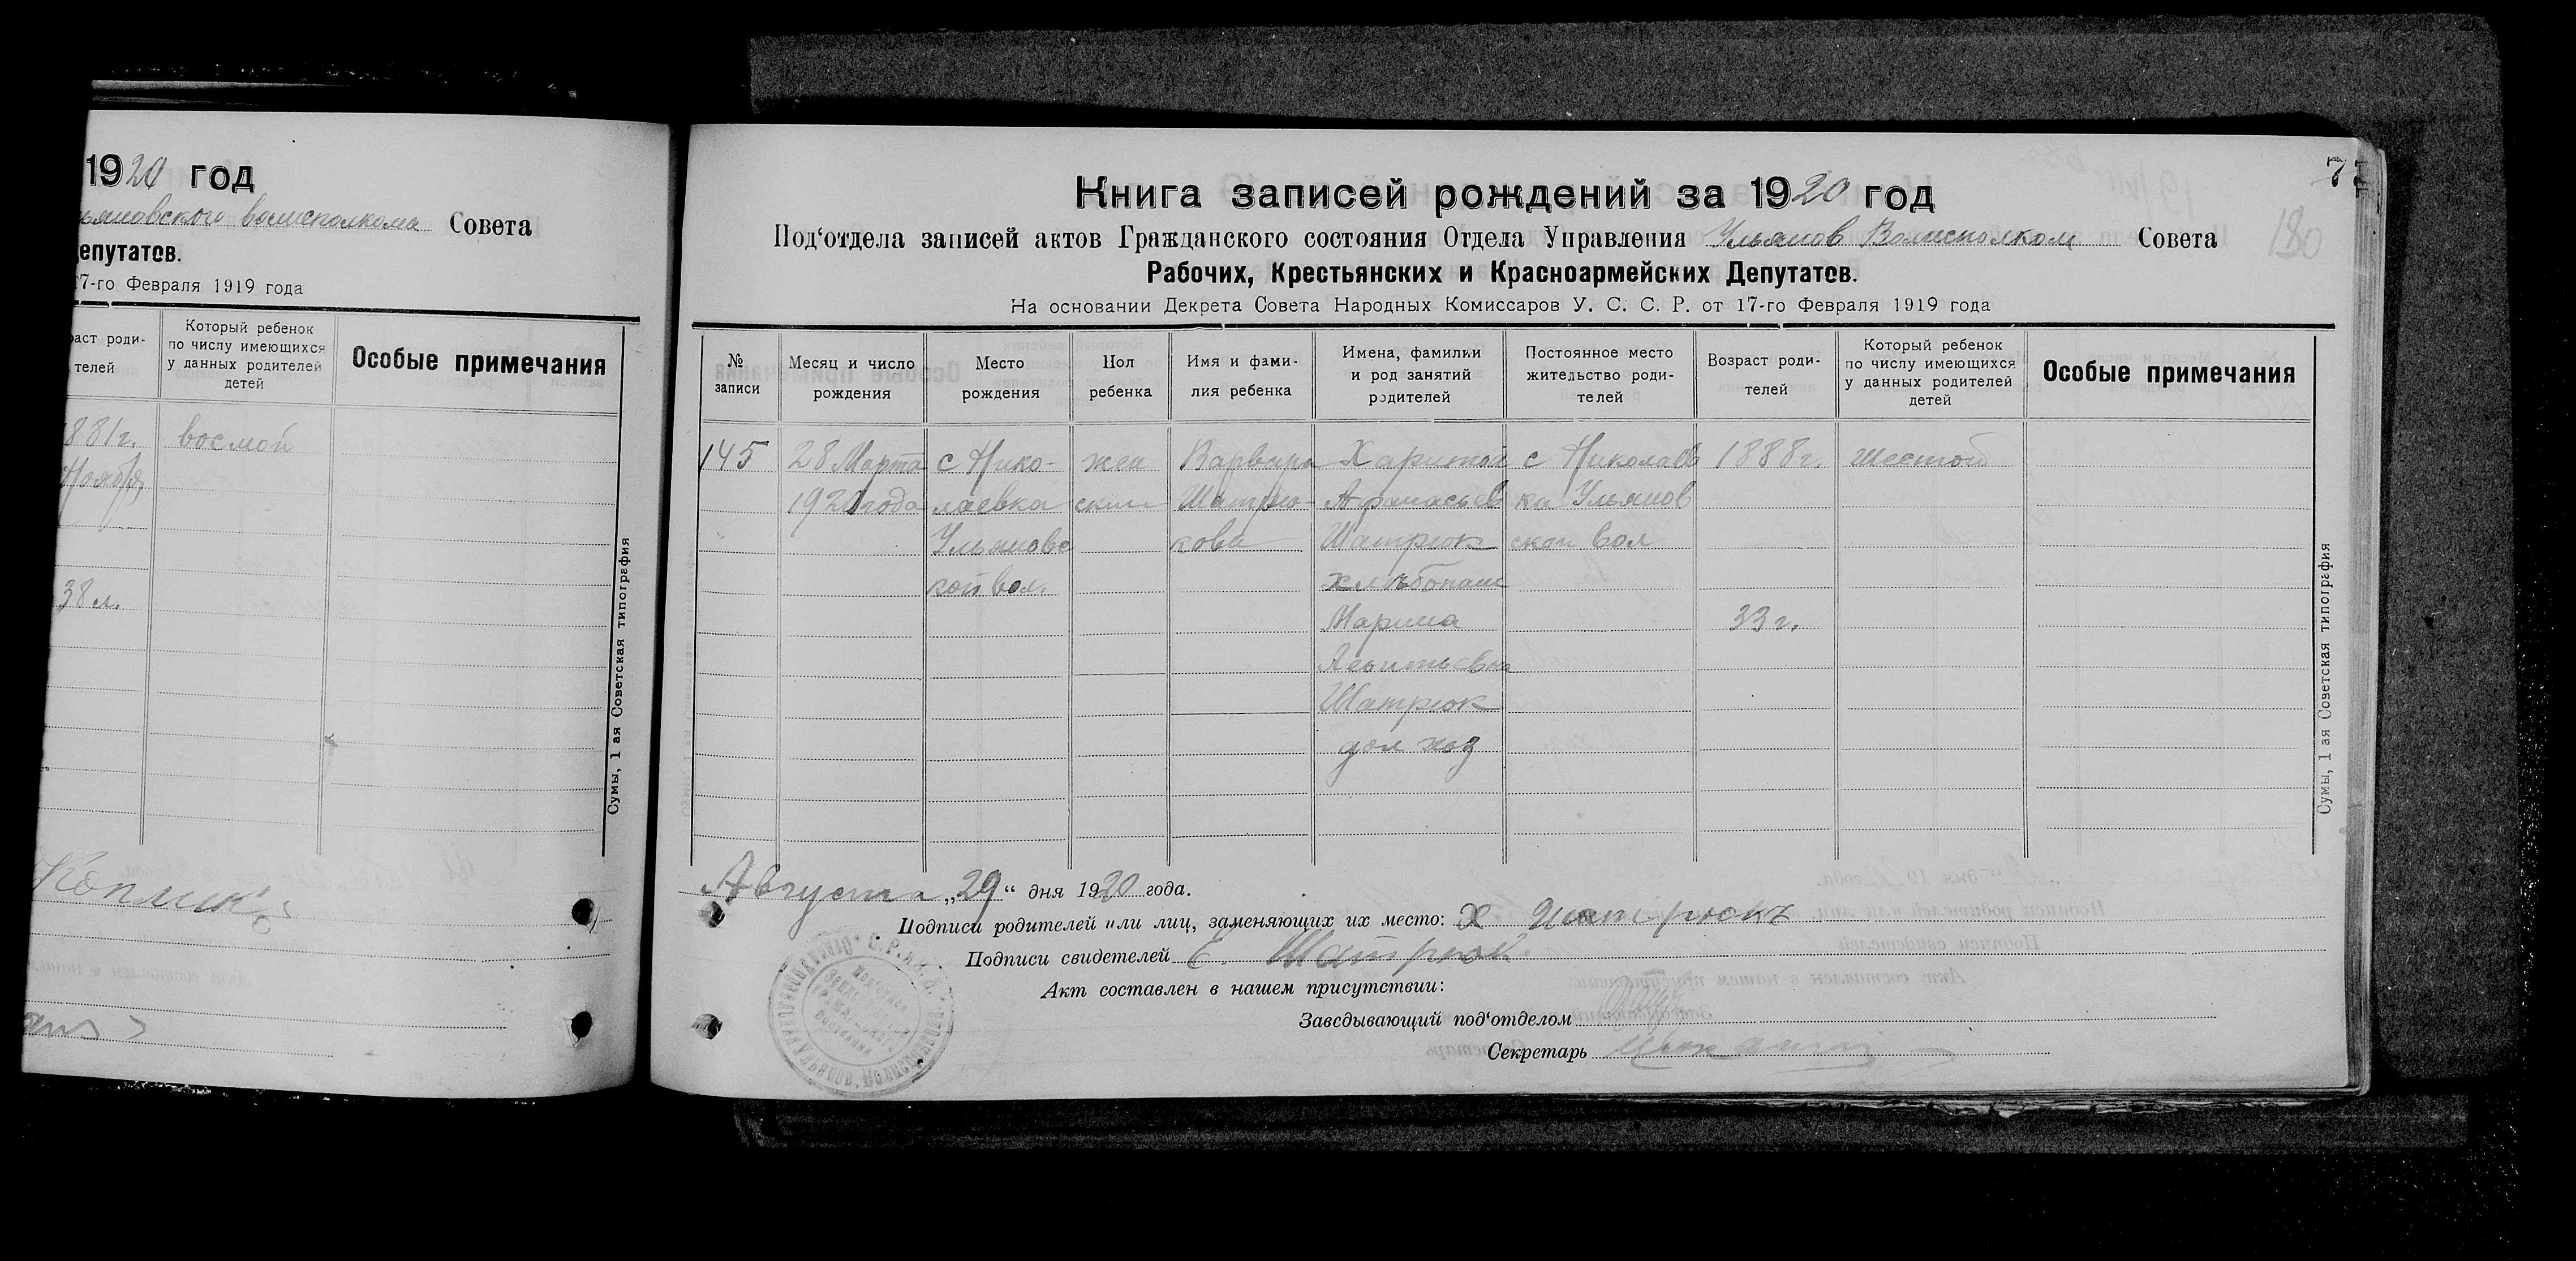 1920 год
ьяновского волисполкома Совета
епутатов.
7-го Февраля 1919 года
раст роди-
телей
Который ребенок
по числу имеющихся
у данных родителей
детей
Особые примечания
881г.
восмой
Ноября
38 л.
Коплик
Сумы, 1 ая Советская типография
77
180
Книга записей рождений за 1920 год
Под‘отдела записей актов Гражданского состояния Отдела Управления Ульянов Волисполком Совета
Рабочих, Крестьянских и Красноармейских Депутатов.
На основании Декрета Совета Народных Комиссаров У. С. С. Р. от 17-го Февраля 1919 года
№
записи
Месяц и число
рождения
Место
рождения
Пол
ребенка
Имя и фами-
лия ребенка
Имена, фамилии
и род занятий
родителей
Постоянное место
жительство роди-
телей
Возраст роди-
телей
Который ребенок
по числу имеющихся
у данных родителей
детей
Особые примечания
145
28 Марта
1920 года
с Нико-
лаевка
Ульяновс
кой вол.
жен
ский
Варвара
Шатрю-
кова
Харитон
Афанасьев
Шатрюк
хлѣбопаш
Марина
Леонтьевна
Шатрюк
дом хоз
с Николаев
ка Ульянов
ской вол
1888г.
33 г.
шестой
Сумы, 1 ая Советская типография
Августа „29“ дня 1920 года.
Подписи родителей или лиц, заменяющих их место: Х Шатрюкъ
Подписи свидетелей Е. Шатрюк
Акт составлен в нашем присутствии:
Заведывающий под‘отделом
Секретарь